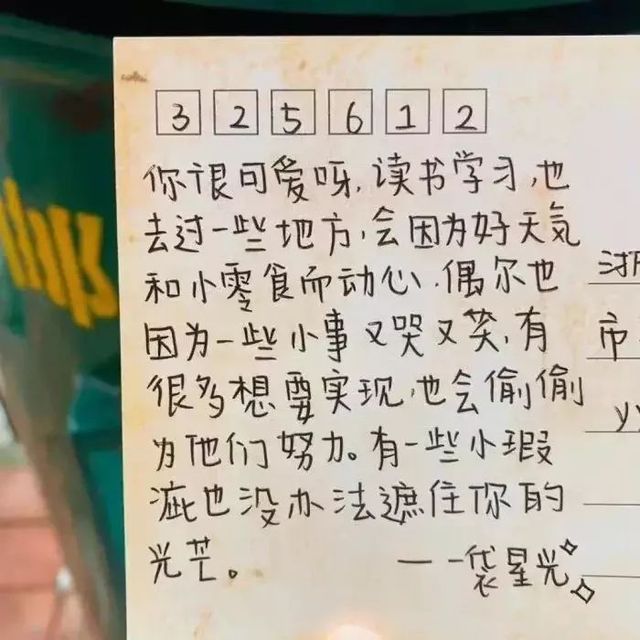 325612
你很可爱呀，读书学习，也
去过一些地方，会因为好天気
和小零食而动心，偶尔也
因为一些小事又哭又笑，有
很多想要实现，也会偷偷
为他们努力。有一些小瑕
疵也没办法遮住你的
光芒。 ——一袋星光
浙
市